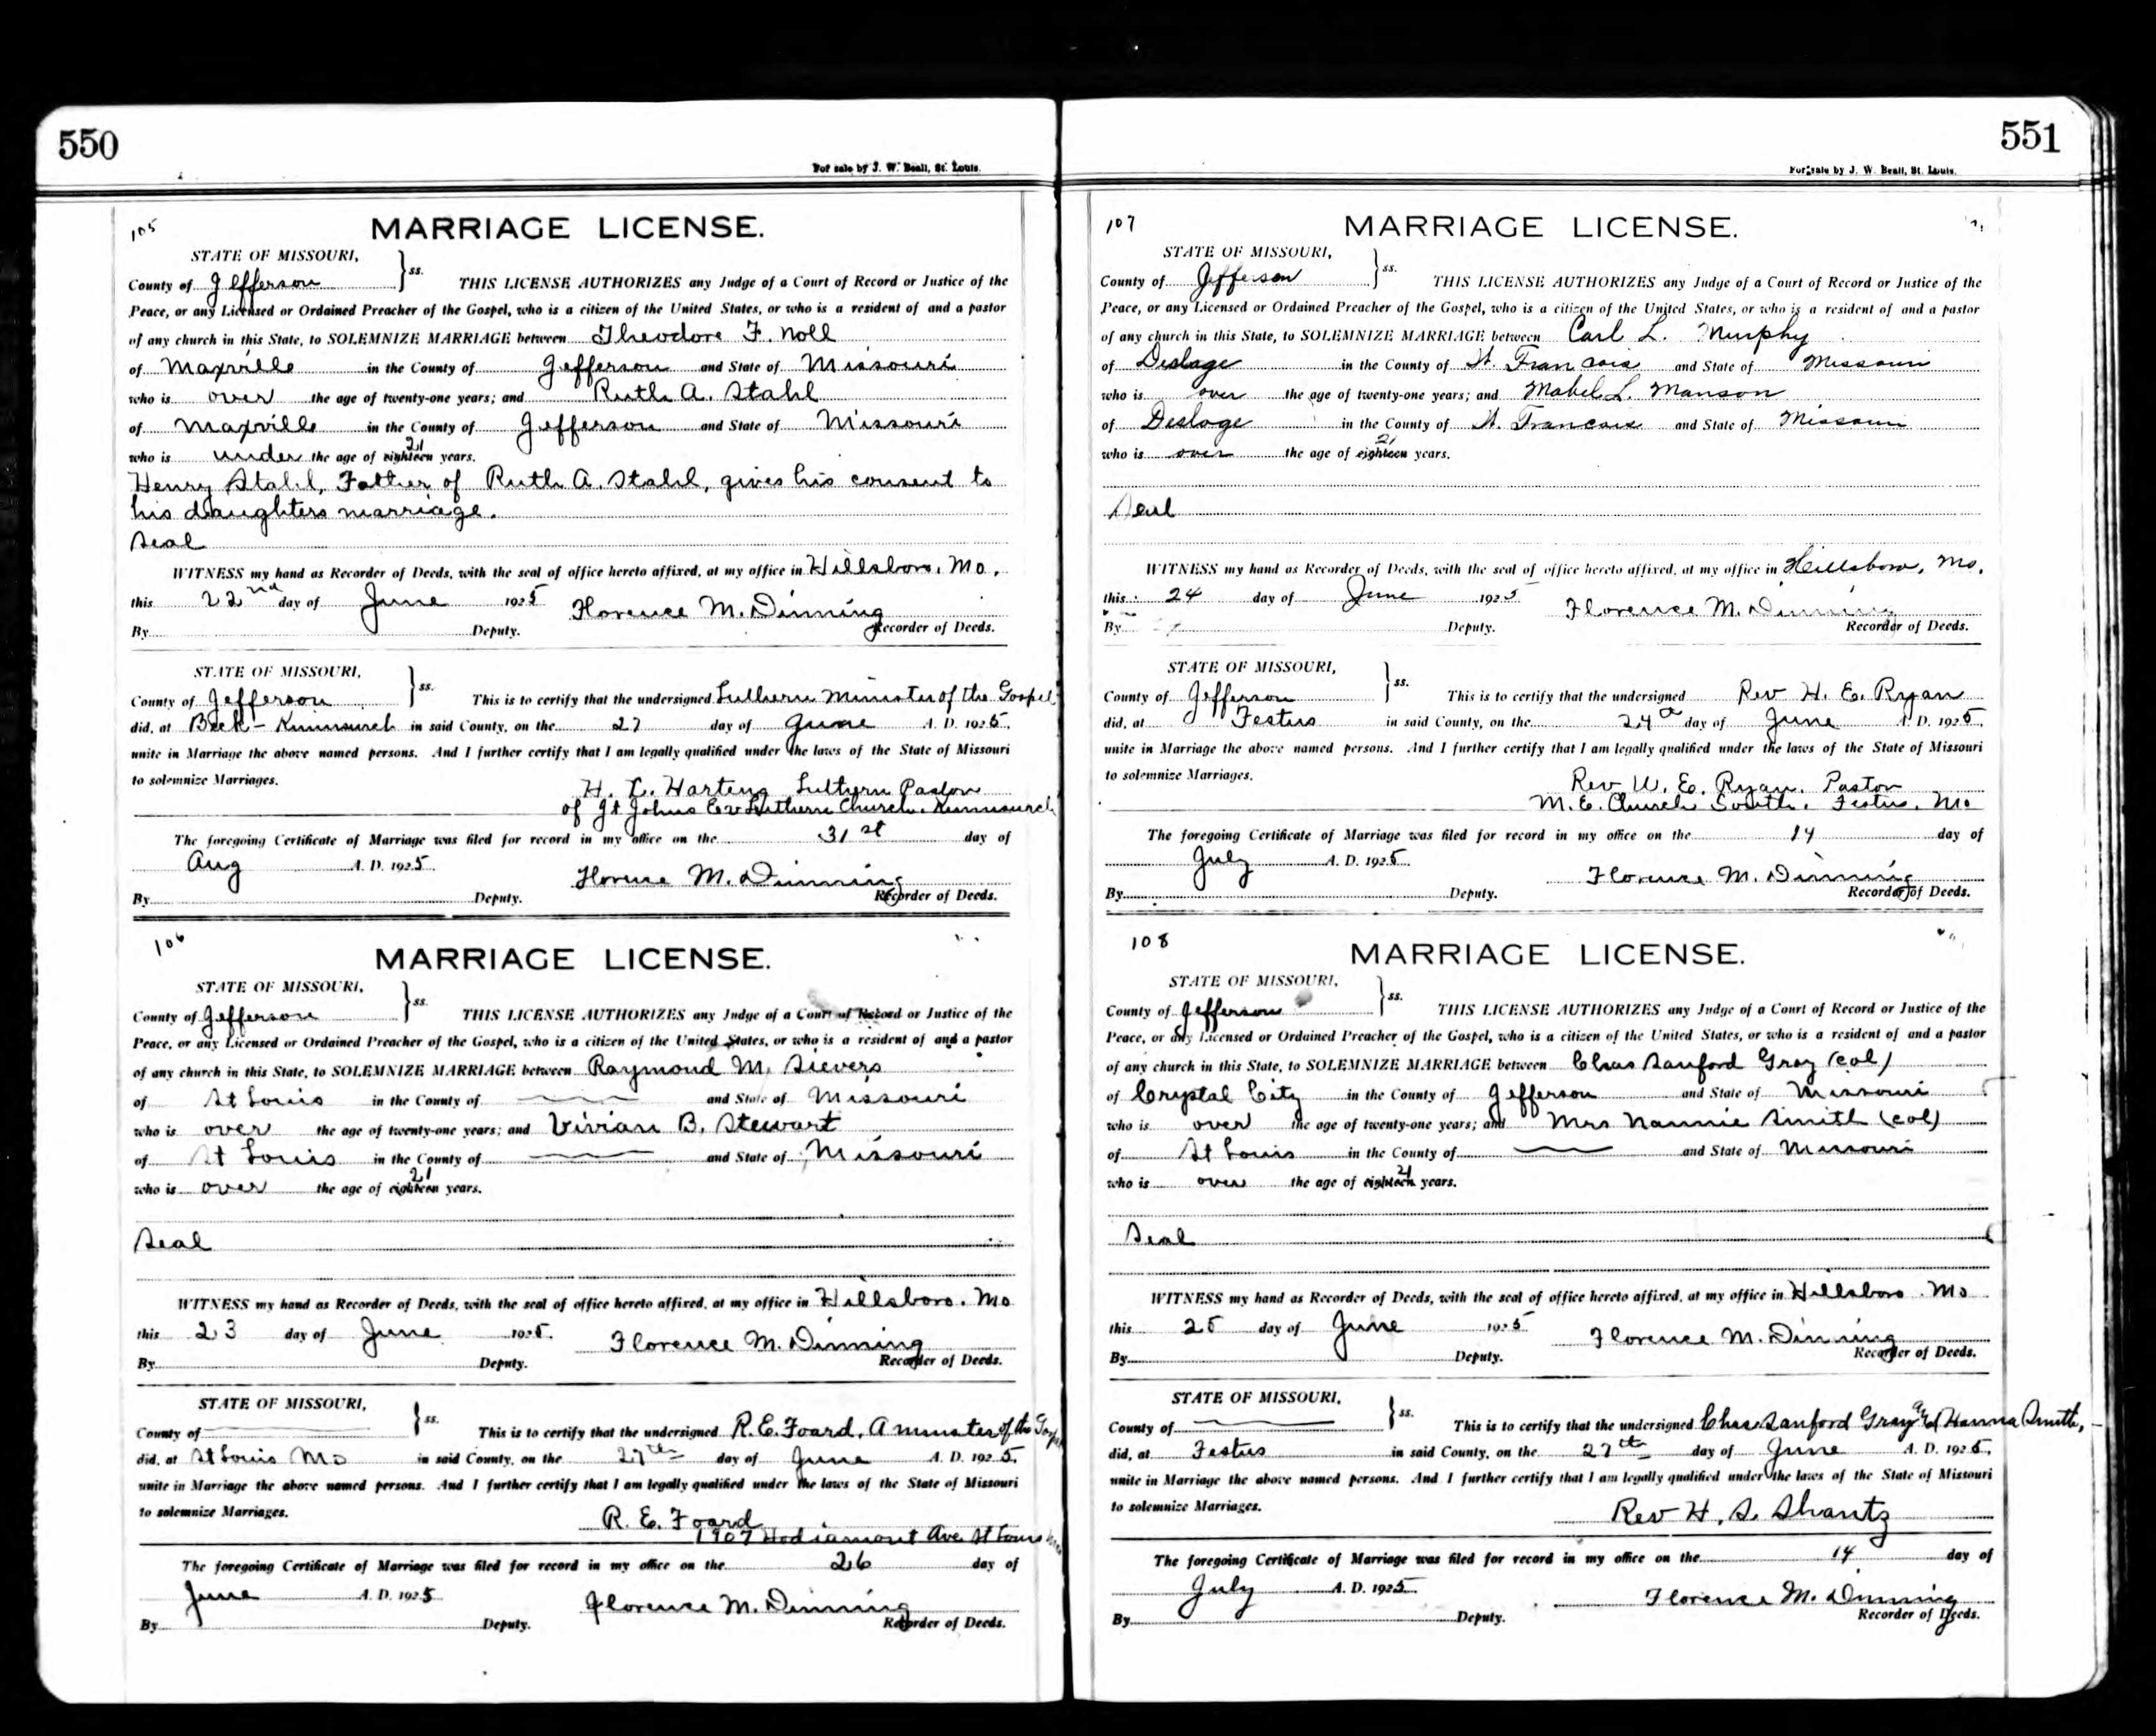 550
For sale by J. W. Beall, St. Louis.
105
MARRIAGE LICENSE.
STATE OF MISSOURI,
County of Jefferson ss. THIS LICENSE AUTHORIZES any Judge of a Court of Record or Justice of the
Peace, or any Licensed or Ordained Preacher of the Gospel, who is a citizen of the United States, or who is a resident of and a pastor
of any church in this State, to SOLEMNIZE MARRIAGE between Theodore F. Noll
of Maxville in the County of Jefferson and State of Missouri
who is over the age of twenty-one years; and Ruth A. Stahl
of Maxville in the County of Jefferson and State of Missouri
who is under the age of eighteen 21 years.
Henry Stahl, Father of Ruth A. Stahl, gives his consent to
his daughters marriage.
Seal
WITNESS my hand as Recorder of Deeds, with the seal of office hereto affixed, at my office in Hillsboro, Mo.
this 22nd day of June 1925 Florence M. Dinning
By Deputy. Recorder of Deeds.
STATE OF MISSOURI,
County of Jefferson ss. This is to certify that the undersigned Luthern Minister of the Gospel
did, at Beck - Kimmswick in said County, on the 27 day of June A. D. 1925,
unite in Marriage the above named persons. And I further certify that I am legally qualified under the laws of the State of Missouri
to solemnize Marriages.
H. C. Harting Luthern Pastor
of St Johns Ev Luthern Church. Kimmswick
The foregoing Certificate of Marriage was filed for record in my office on the 31st day of
Aug A. D. 1925. Florence M. Dinning
By Deputy. Recorder of Deeds.
106
MARRIAGE LICENSE.
STATE OF MISSOURI,
County of Jefferson ss. THIS LICENSE AUTHORIZES any Judge of a Court of Record or Justice of the
Peace, or any Licensed or Ordained Preacher of the Gospel, who is a citizen of the United States, or who is a resident of and a pastor
of any church in this State, to SOLEMNIZE MARRIAGE between Raymond M. Sievers
of St Louis in the County of and State of Missouri
who is over the age of twenty-one years; and Vivian B. Stewart
of St Louis in the County of and State of Missouri
who is over the age of eighteen 21 years.
Seal
WITNESS my hand as Recorder of Deeds, with the seal of office hereto affixed, at my office in Hillsboro. Mo
this 23 day of June 1925. Florence M. Dinning
By Deputy. Recorder of Deeds.
STATE OF MISSOURI,
County of ss. This is to certify that the undersigned R. E. Foard, A minister of the Gospel
did, at St Louis Mo in said County, on the 27th day of June A. D. 1925,
unite in Marriage the above named persons. And I further certify that I am legally qualified under the laws of the State of Missouri
to solemnize Marriages.
R. E. Foard
1907 Hodiamont Ave St Louis
The foregoing Certificate of Marriage was filed for record in my office on the 26 day of
June A. D. 1925 Florence M. Dinning
By Deputy. Recorder of Deeds.
551
For sale by J. W. Beall, St. Louis.
107
MARRIAGE LICENSE.
STATE OF MISSOURI,
County of Jefferson ss. THIS LICENSE AUTHORIZES any Judge of a Court of Record or Justice of the
Peace, or any Licensed or Ordained Preacher of the Gospel, who is a citizen of the United States, or who is a resident of and a pastor
of any church in this State, to SOLEMNIZE MARRIAGE between Carl L. Murphy
of Desloge in the County of St. Francois and State of Missouri
who is over the age of twenty-one years; and Mabel L. Manson
of Desloge in the County of St. Francois and State of Missouri
who is over the age of eighteen 21 years.
Seal
WITNESS my hand as Recorder of Deeds, with the seal of office hereto affixed, at my office in Hillsboro, Mo.
this 24 day of June 1925 Florence M. Dinning
By Deputy. Recorder of Deeds.
STATE OF MISSOURI,
County of Jefferson ss. This is to certify that the undersigned Rev H. E. Ryan
did, at Festus in said County, on the 24th day of June A. D. 1925,
unite in Marriage the above named persons. And I further certify that I am legally qualified under the laws of the State of Missouri
to solemnize Marriages.
Rev W. E. Ryan. Pastor
M. E. Church South. Festus, Mo
The foregoing Certificate of Marriage was filed for record in my office on the 14 day of
July A. D. 1925. Florence M. Dinning
By Deputy. Recorder of Deeds.
108
MARRIAGE LICENSE.
STATE OF MISSOURI,
County of Jefferson ss. THIS LICENSE AUTHORIZES any Judge of a Court of Record or Justice of the
Peace, or any Licensed or Ordained Preacher of the Gospel, who is a citizen of the United States, or who is a resident of and a pastor
of any church in this State, to SOLEMNIZE MARRIAGE between Chas Sanford Gray (col)
of Crystal City in the County of Jefferson and State of Missouri
who is over the age of twenty-one years; and Mrs Nannie Smith (col)
of St Louis in the County of and State of Missouri
who is over the age of eighteen 21 years.
Seal
WITNESS my hand as Recorder of Deeds, with the seal of office hereto affixed, at my office in Hillsboro. Mo
this 25 day of June 1925 Florence M. Dinning
By Deputy. Recorder of Deeds.
STATE OF MISSOURI,
County of ss. This is to certify that the undersigned Chas Sanford Gray and Hanna Smith,
did, at Festus in said County, on the 27th day of June A. D. 1925,
unite in Marriage the above named persons. And I further certify that I am legally qualified under the laws of the State of Missouri
to solemnize Marriages.
Rev H. S. Shantz
The foregoing Certificate of Marriage was filed for record in my office on the 14 day of
July A. D. 1925. Florence M. Dinning
By Deputy. Recorder of Deeds.